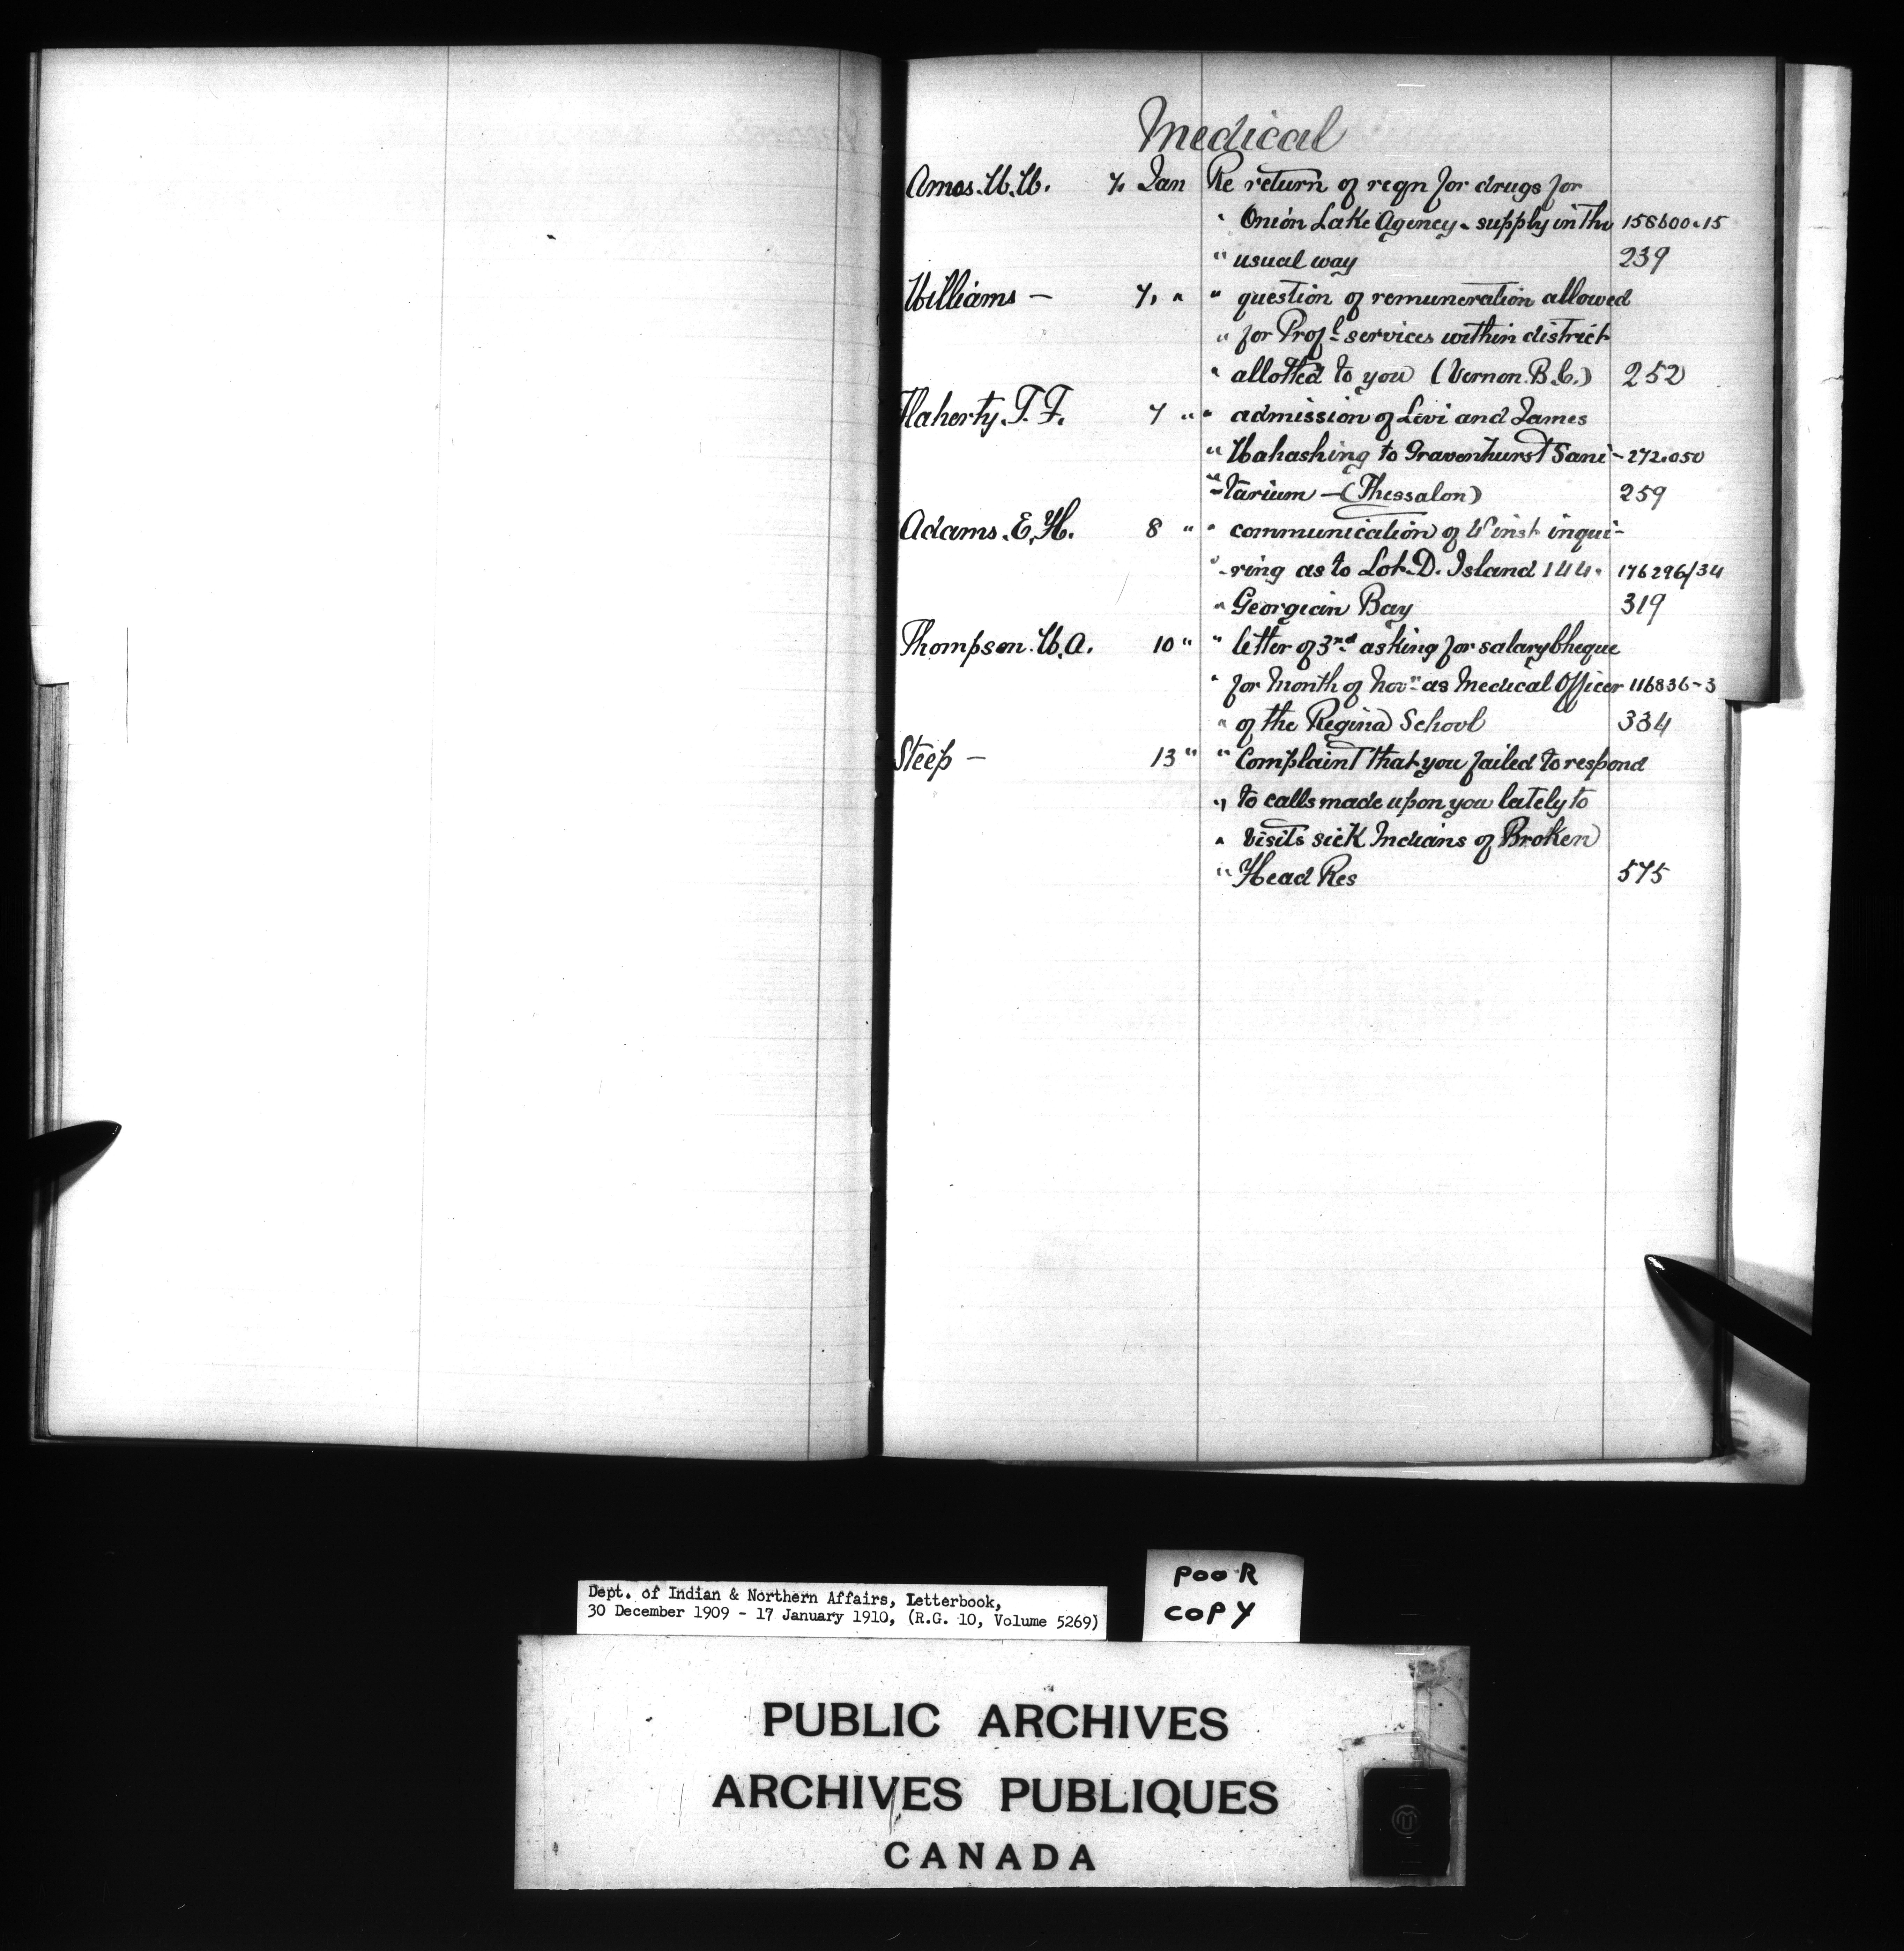 Medical
Amos. W. W. 7. Jan Re return of reqn for drugs for
" Onion Lake Agency - supply in the 158600-15
" usual way 239
Williams — 7, " " question of remuneration allowed
" for Profl services within district
" allotted to you (Vernon. B.C.) 252
Flaherty. T. F. 7 " " admission of Levi and James
" Wahashing to Gravenhurst Sani- 272.050
" -tarium — (Thessalon) 259
Adams. E. H. 8 " " communication of inst inqui-
" -ring as to Lot. D. Island 144. 176296/34
" Georgian Bay 319
Thompson. W. A. 10 " " letter of 3rd asking for salary Cheque
" for Month of Novr as Medical Officer 116836-3
" of the Regina School 334
Steep — 13 " " Complaint that you failed to respond
" to calls made upon you lately to
" visits sick Indians of Broken
" Head Res 575
Dept. of Indian & Northern Affairs, Letterbook,
30 December 1909 - 17 January 1910, (R.G. 10, Volume 5269)
POOR
COPY
PUBLIC ARCHIVES
ARCHIVES PUBLIQUES
CANADA